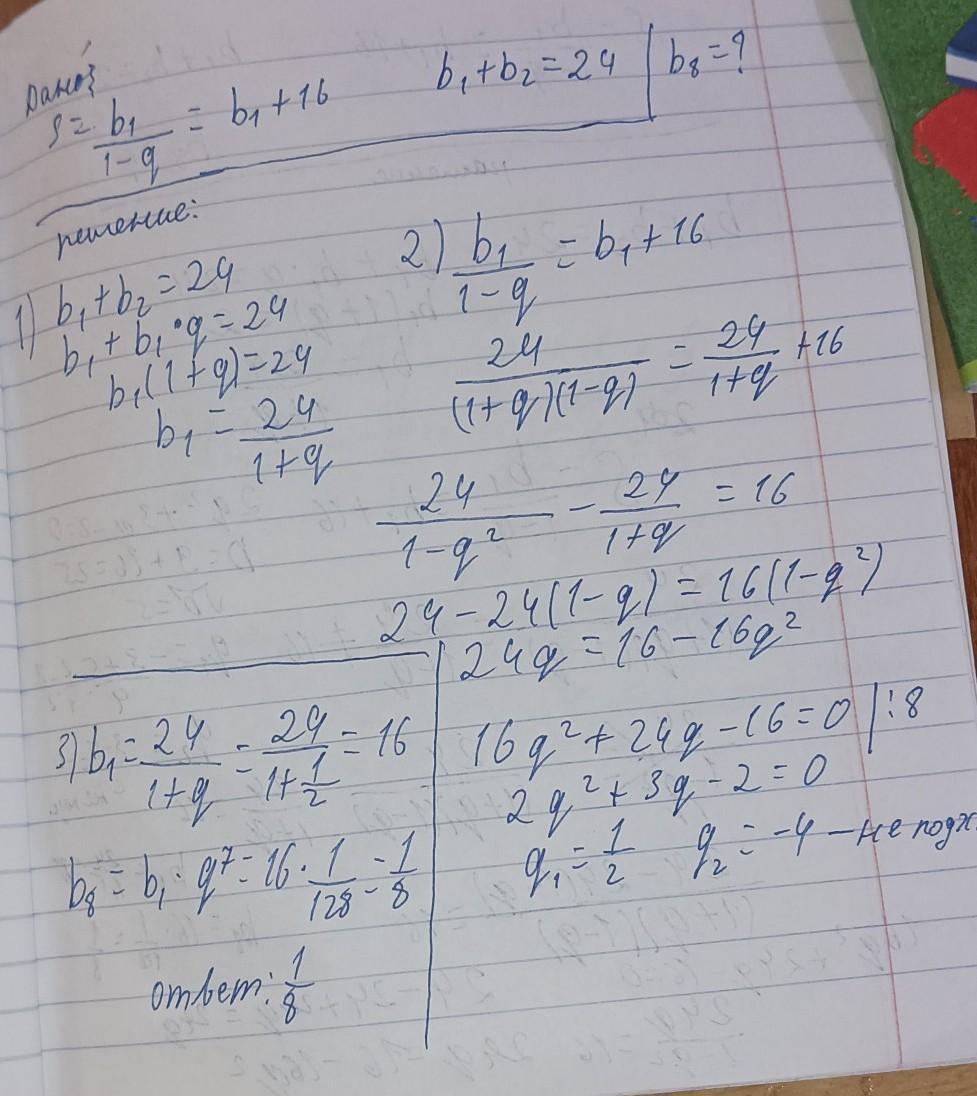 Дано:
S = b₁/(1-q) = b₁+16   b₁+b₂=24 | b₈=?
решение:
1) b₁+b₂=24
b₁+b₁·q=24
b₁(1+q)=24
b₁ = 24/(1+q)
2) b₁/(1-q) = b₁+16
24/((1+q)(1-q)) = 24/(1+q) +16
24/(1-q²) - 24/(1+q) = 16
24-24(1-q)=16(1-q²)
24q=16-16q²
16q²+24q-16=0 |:8
2q²+3q-2=0
q₁=1/2   q₂=-4 - не подх
3) b₁=24/(1+q) = 24/(1+1/2) = 16
b₈=b₁·q⁷=16·1/128=1/8
ответ: 1/8